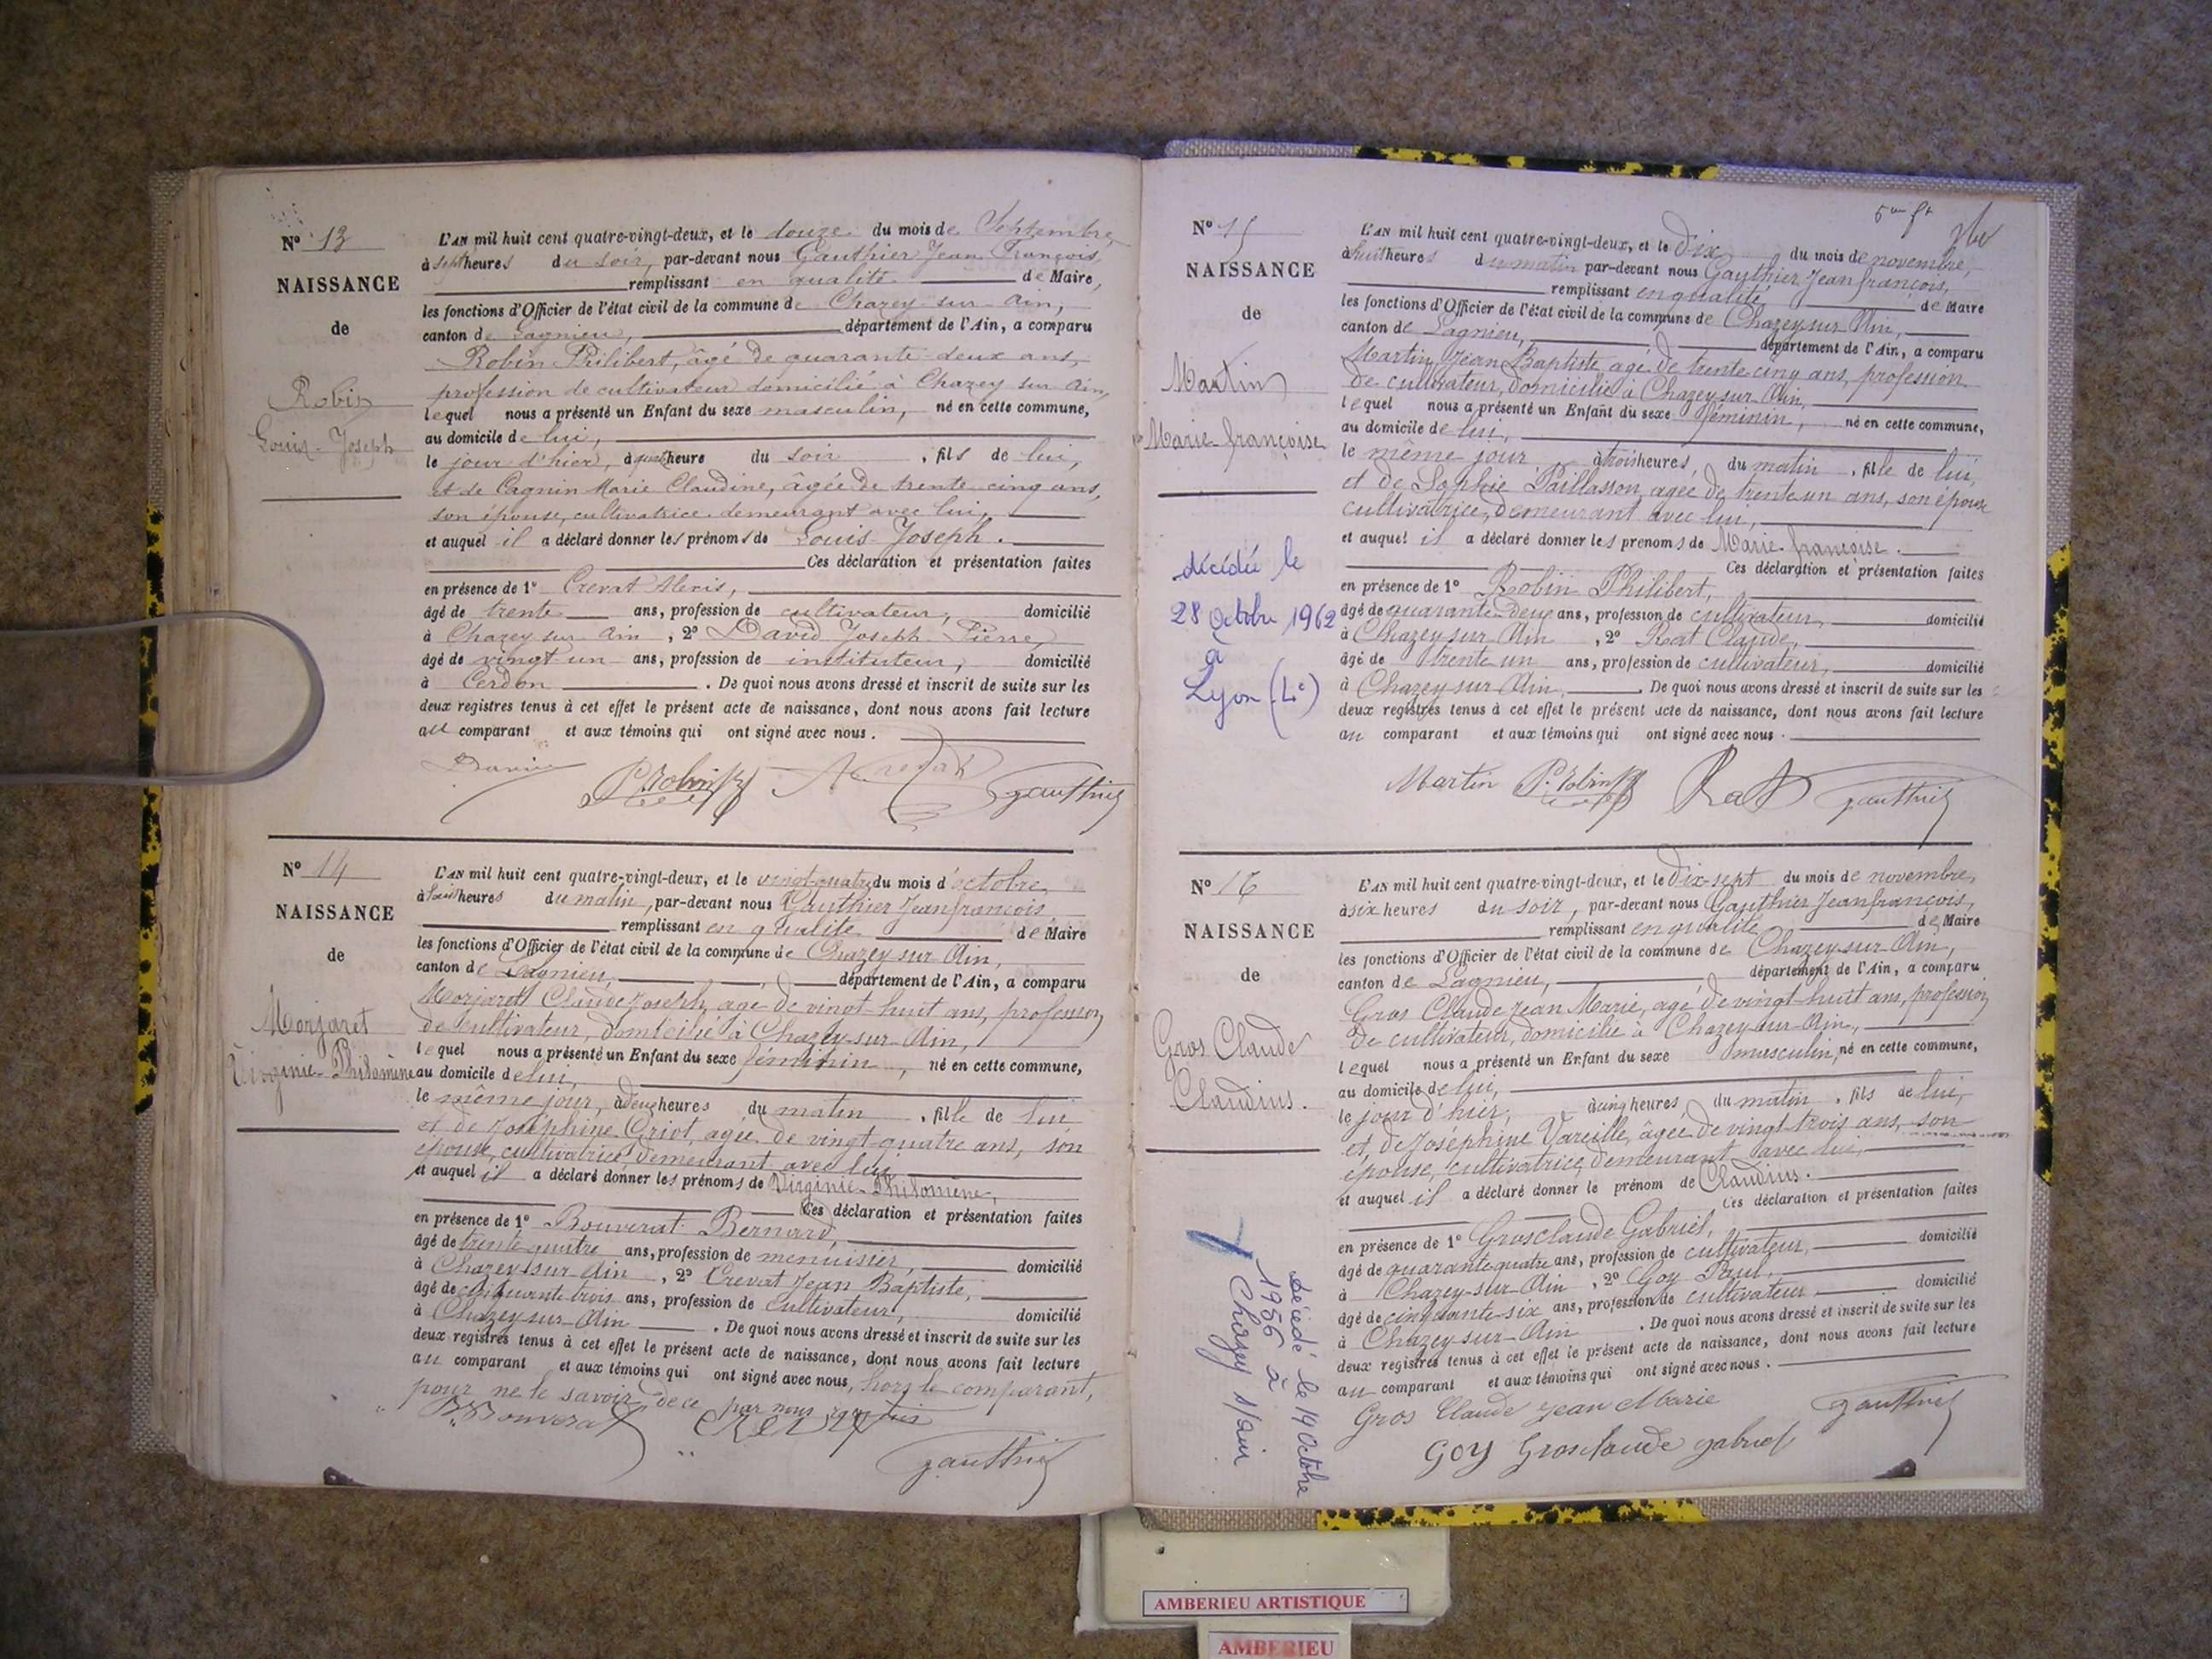 N° 13
NAISSANCE
de
Robin
Louis-Joseph
L'AN mil huit cent quatre-vingt-deux, et le douze du mois de Septembre
à sept heures du soir, par-devant nous Gauthier Jean François,
remplissant en qualité de Maire,
les fonctions d'Officier de l'état civil de la commune de Chazey sur Ain,
canton de Lagnieu, département de l'Ain, a comparu
Robin Philibert, âgé de quarante deux ans,
profession de cultivateur domicilié à Chazey sur Ain,
lequel nous a présenté un Enfant du sexe masculin, né en cette commune,
au domicile de lui,
le jour d'hier, à heure du soir, fils de lui,
et de Cagnin Marie Claudine, âgée de trente cinq ans,
son épouse, cultivatrice demeurant avec lui,
et auquel il a déclaré donner les prénoms de Louis Joseph.
Ces déclaration et présentation faites
en présence de 1° Crevat Alexis,
âgé de trente ans, profession de cultivateur, domicilié
à Chazey sur Ain, 2° David Joseph Pierre,
âgé de vingt un ans, profession de instituteur, domicilié
à Cerdon. De quoi nous avons dressé et inscrit de suite sur les
deux registres tenus à cet effet le présent acte de naissance, dont nous avons fait lecture
au comparant et aux témoins qui ont signé avec nous.
David P. Robin A Crevat Gauthier
N° 14
NAISSANCE
de
Morjaret
Virginie-Philomène
L'AN mil huit cent quatre-vingt-deux, et le vingt-quatre du mois d'octobre
à huit heures du matin, par-devant nous Gauthier Jean françois,
remplissant en qualité de Maire
les fonctions d'Officier de l'état civil de la commune de Chazey-sur-Ain,
canton de Lagnieu, département de l'Ain, a comparu
Morjaret Claude Joseph, agé de vingt huit ans, profession
de cultivateur, domicilié à Chazey-sur-Ain,
lequel nous a présenté un Enfant du sexe féminin, né en cette commune,
au domicile de lui,
le même jour, à deux heures du matin, fille de lui
et de Joséphine Criot, agée de vingt-quatre ans, son
épouse, cultivatrice, demeurant avec lui,
et auquel il a déclaré donner les prénoms de Virginie-Philomène,
Ces déclaration et présentation faites
en présence de 1° Bouverat Bernard,
âgé de trente quatre ans, profession de menuisier, domicilié
à Chazey-sur-Ain, 2° Crevat Jean Baptiste,
âgé de cinquante trois ans, profession de cultivateur, domicilié
à Chazey-sur-Ain. De quoi nous avons dressé et inscrit de suite sur les
deux registres tenus à cet effet le présent acte de naissance, dont nous avons fait lecture
au comparant et aux témoins qui ont signé avec nous, hors le comparant,
pour ne le savoir de ce par nous requis
B. Bouverat Crevat
Gauthier
N° 15
NAISSANCE
de
Martin
Marie-françoise
décédée le
28 Octobre 1962
à
Lyon (4e)
L'AN mil huit cent quatre-vingt-deux, et le Dix du mois de novembre,
à huit heures du matin par-devant nous Gauthier Jean françois,
remplissant en qualité, de Maire
les fonctions d'Officier de l'état civil de la commune de Chazey-sur-Ain,
canton de Lagnieu, département de l'Ain, a comparu
Martin Jean Baptiste, agé de trente cinq ans, profession
de cultivateur, domicilié à Chazey-sur-Ain,
lequel nous a présenté un Enfant du sexe féminin, né en cette commune,
au domicile de lui,
le même jour à trois heures, du matin, fille de lui,
et de Sophie Paillasson, agée de trente un ans, son épouse
cultivatrice, demeurant avec lui,
et auquel il a déclaré donner les prénoms de Marie-françoise.
Ces déclaration et présentation faites
en présence de 1° Robin Philibert,
âgé de quarante-deux ans, profession de cultivateur, domicilié
à Chazey-sur-Ain, 2° Rat Claude,
âgé de trente un ans, profession de cultivateur, domicilié
à Chazey-sur-Ain. De quoi nous avons dressé et inscrit de suite sur les
deux registres tenus à cet effet le présent acte de naissance, dont nous avons fait lecture
au comparant et aux témoins qui ont signé avec nous.
Martin P. Robin Rat Gauthier
N° 16
NAISSANCE
de
Gros Claude
Claudius.
Décédé le 19 Octobre
1956 à
Chazey s/ain
L'AN mil huit cent quatre-vingt-deux, et le Dix-sept du mois de novembre,
à six heures du soir, par-devant nous Gauthier Jean françois,
remplissant en qualité de Maire
les fonctions d'Officier de l'état civil de la commune de Chazey-sur-Ain,
canton de Lagnieu, département de l'Ain, a comparu
Gros Claude Jean Marie, agé de vingt-huit ans, profession
de cultivateur, domicilié à Chazey-sur-Ain,
lequel nous a présenté un Enfant du sexe masculin, né en cette commune,
au domicile de lui,
le jour d'hier, à cinq heures, du matin, fils de lui,
et de Joséphine Vareille, âgée de vingt-trois ans, son
épouse, cultivatrice, demeurant avec lui,
et auquel il a déclaré donner le prénom de Claudius.
Ces déclaration et présentation faites
en présence de 1° Grosclaude Gabriel,
âgé de quarante quatre ans, profession de cultivateur, domicilié
à Chazey-sur-Ain, 2° Goy Paul,
âgé de cinquante-six ans, profession de cultivateur domicilié
à Chazey-sur-Ain. De quoi nous avons dressé et inscrit de suite sur les
deux registres tenus à cet effet le présent acte de naissance, dont nous avons fait lecture
au comparant et aux témoins qui ont signé avec nous.
Gros Claude Jean Marie Gauthier
GOY Grosclaude gabriel
AMBERIEU ARTISTIQUE
AMBERIEU